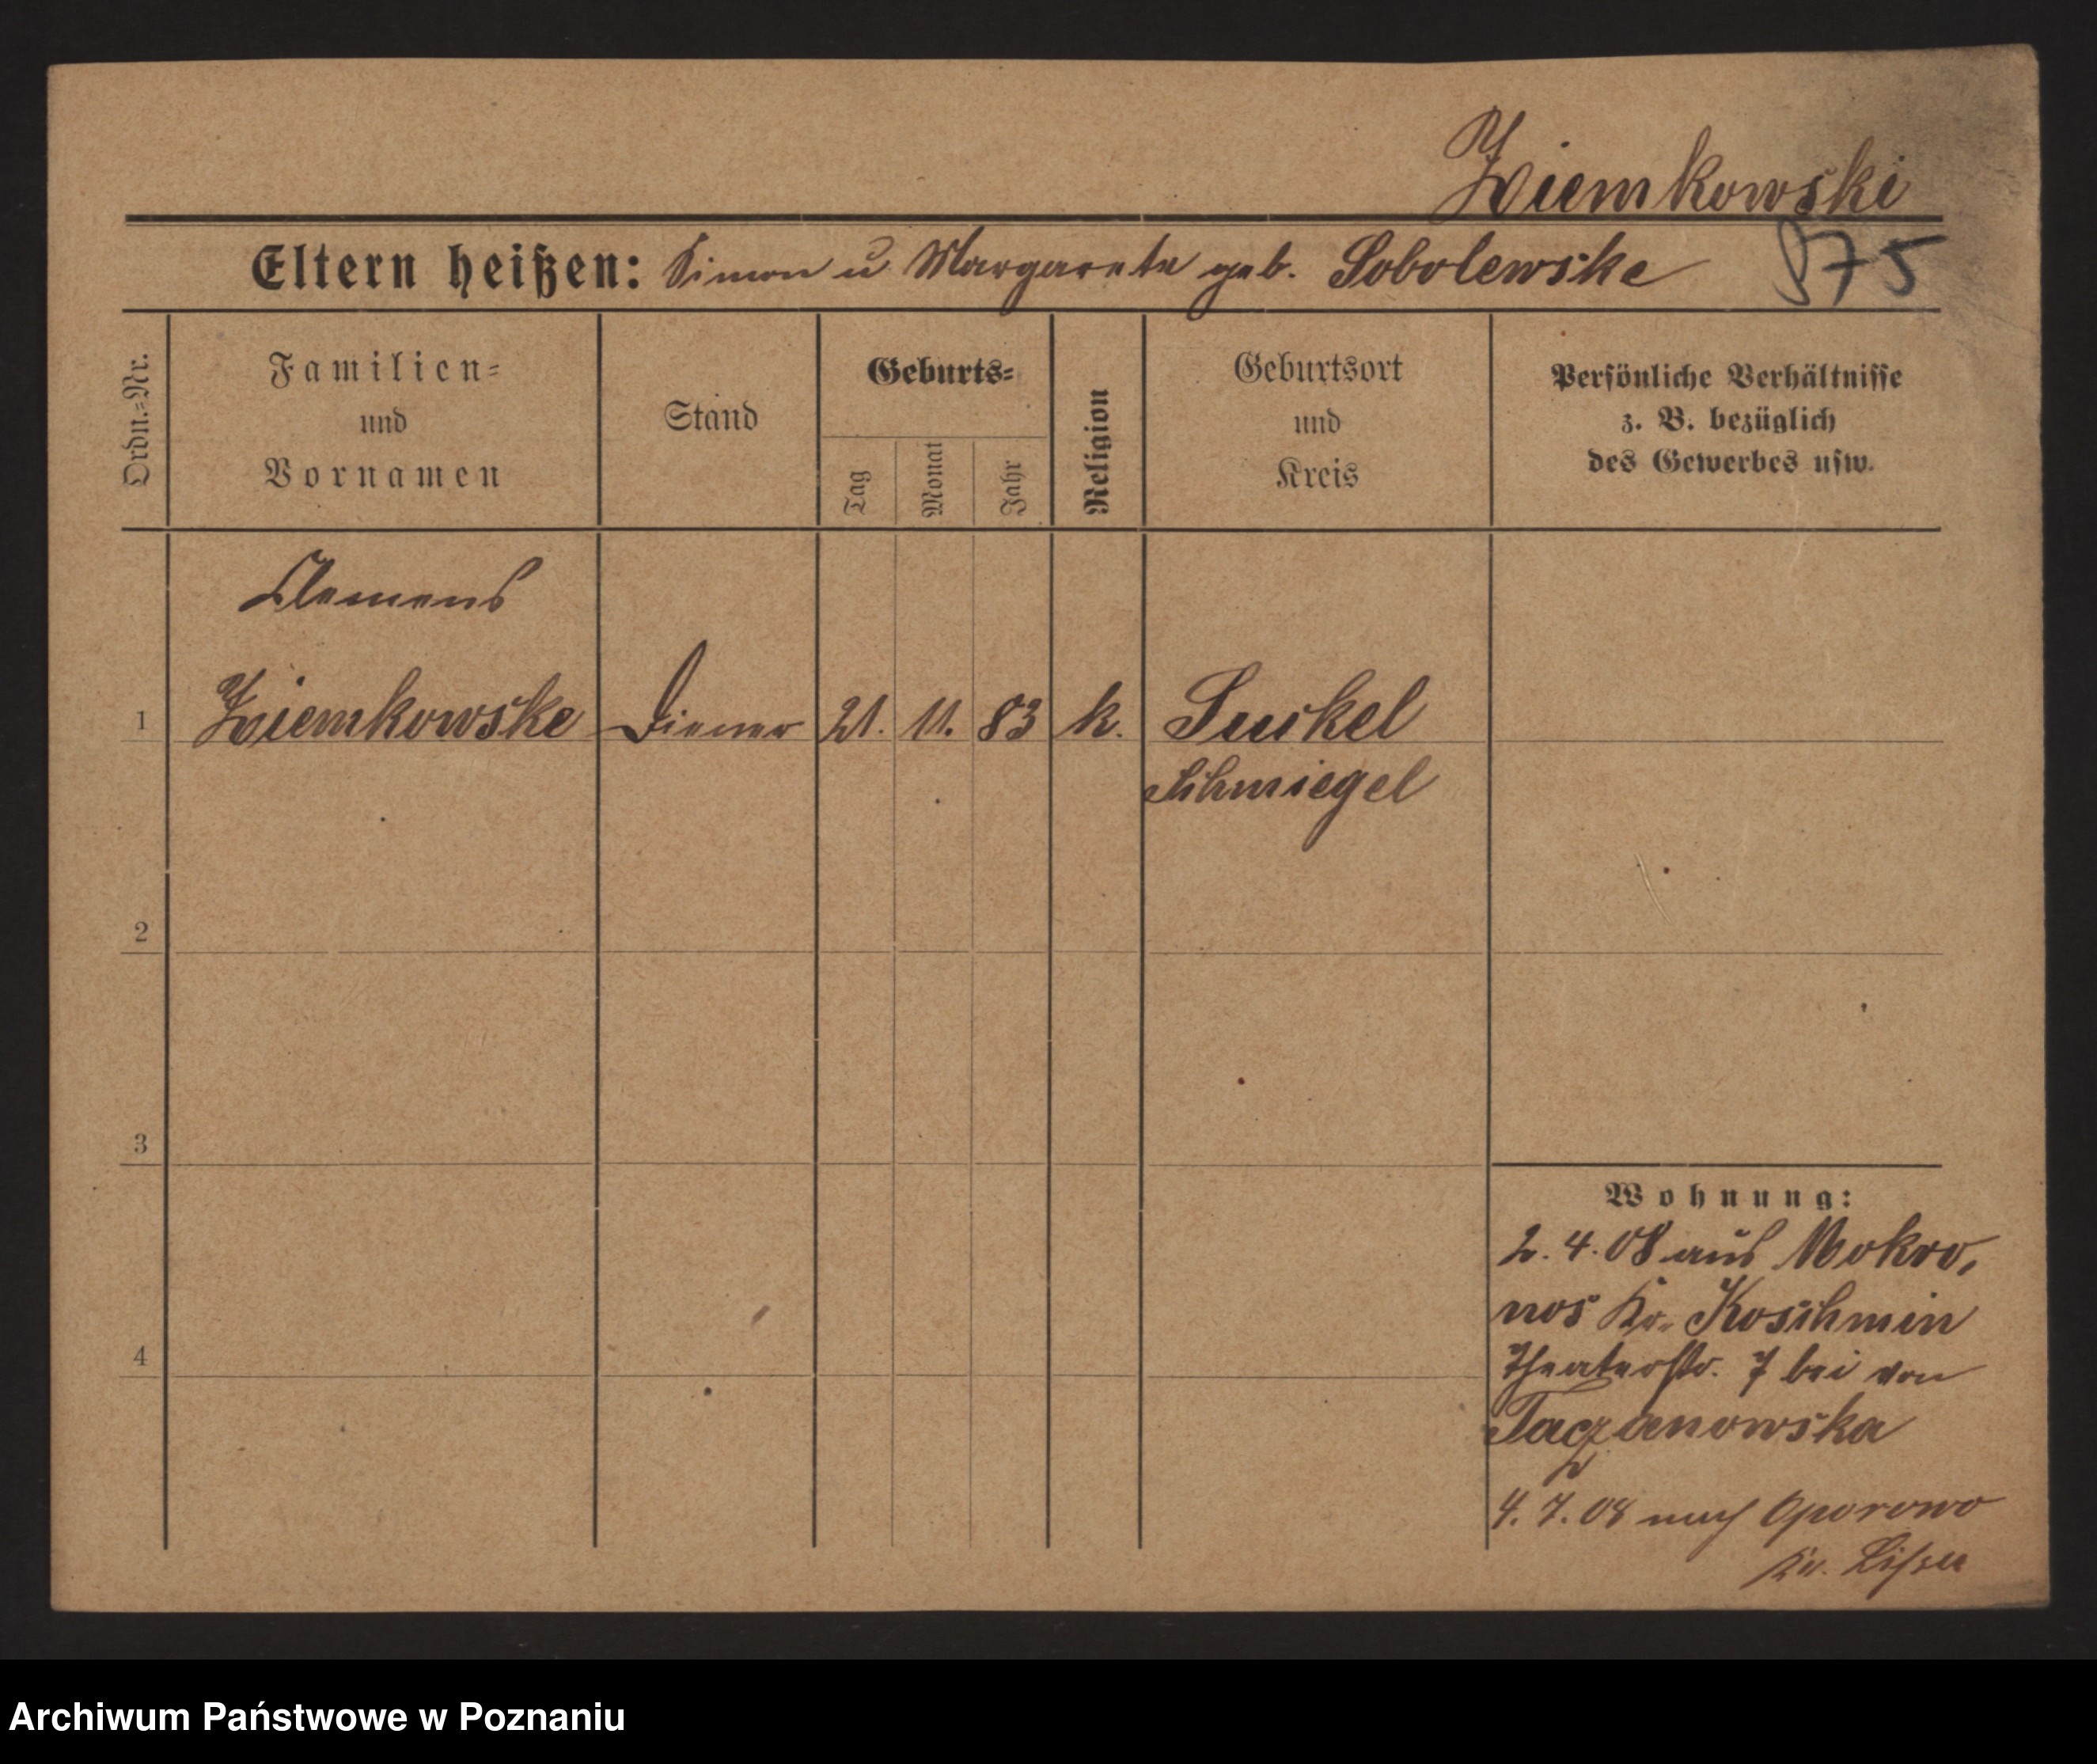 Ziemkowski
Eltern heißen: Simon u Margarete geb. Sobolewska
975
Ordn.=Nr.
Familien=
und
Vornamen
Stand
Geburts=
Tag
Monat
Jahr
Religion
Geburtsort
und
Kreis
Persönliche Verhältnisse
z. B. bezüglich
des Gewerbes usw.
Clemens
1 Ziemkowski Diener 21. 11. 83 k.
Schmiegel
2
3
4
Wohnung:
2. 4. 08 aus Mokro,
nos Kr. Koschmin
Theaterstr. 7 bei von
Taczanowska
4. 7. 08 nach Oporowo
Kr. Lissa
Archiwum Państwowe w Poznaniu